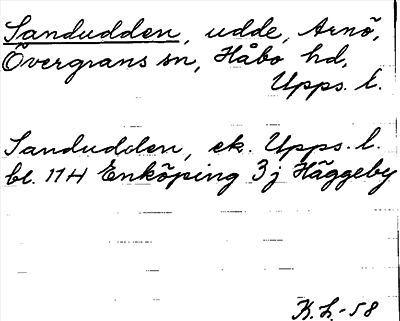 Sandudden, udde, Arnö,
Övergrans sn, Håbo hd,
Upps. l.
Sandudden, ek. Upps. l.
bl. 11H Enköping 3j Häggeby
K.L.-58